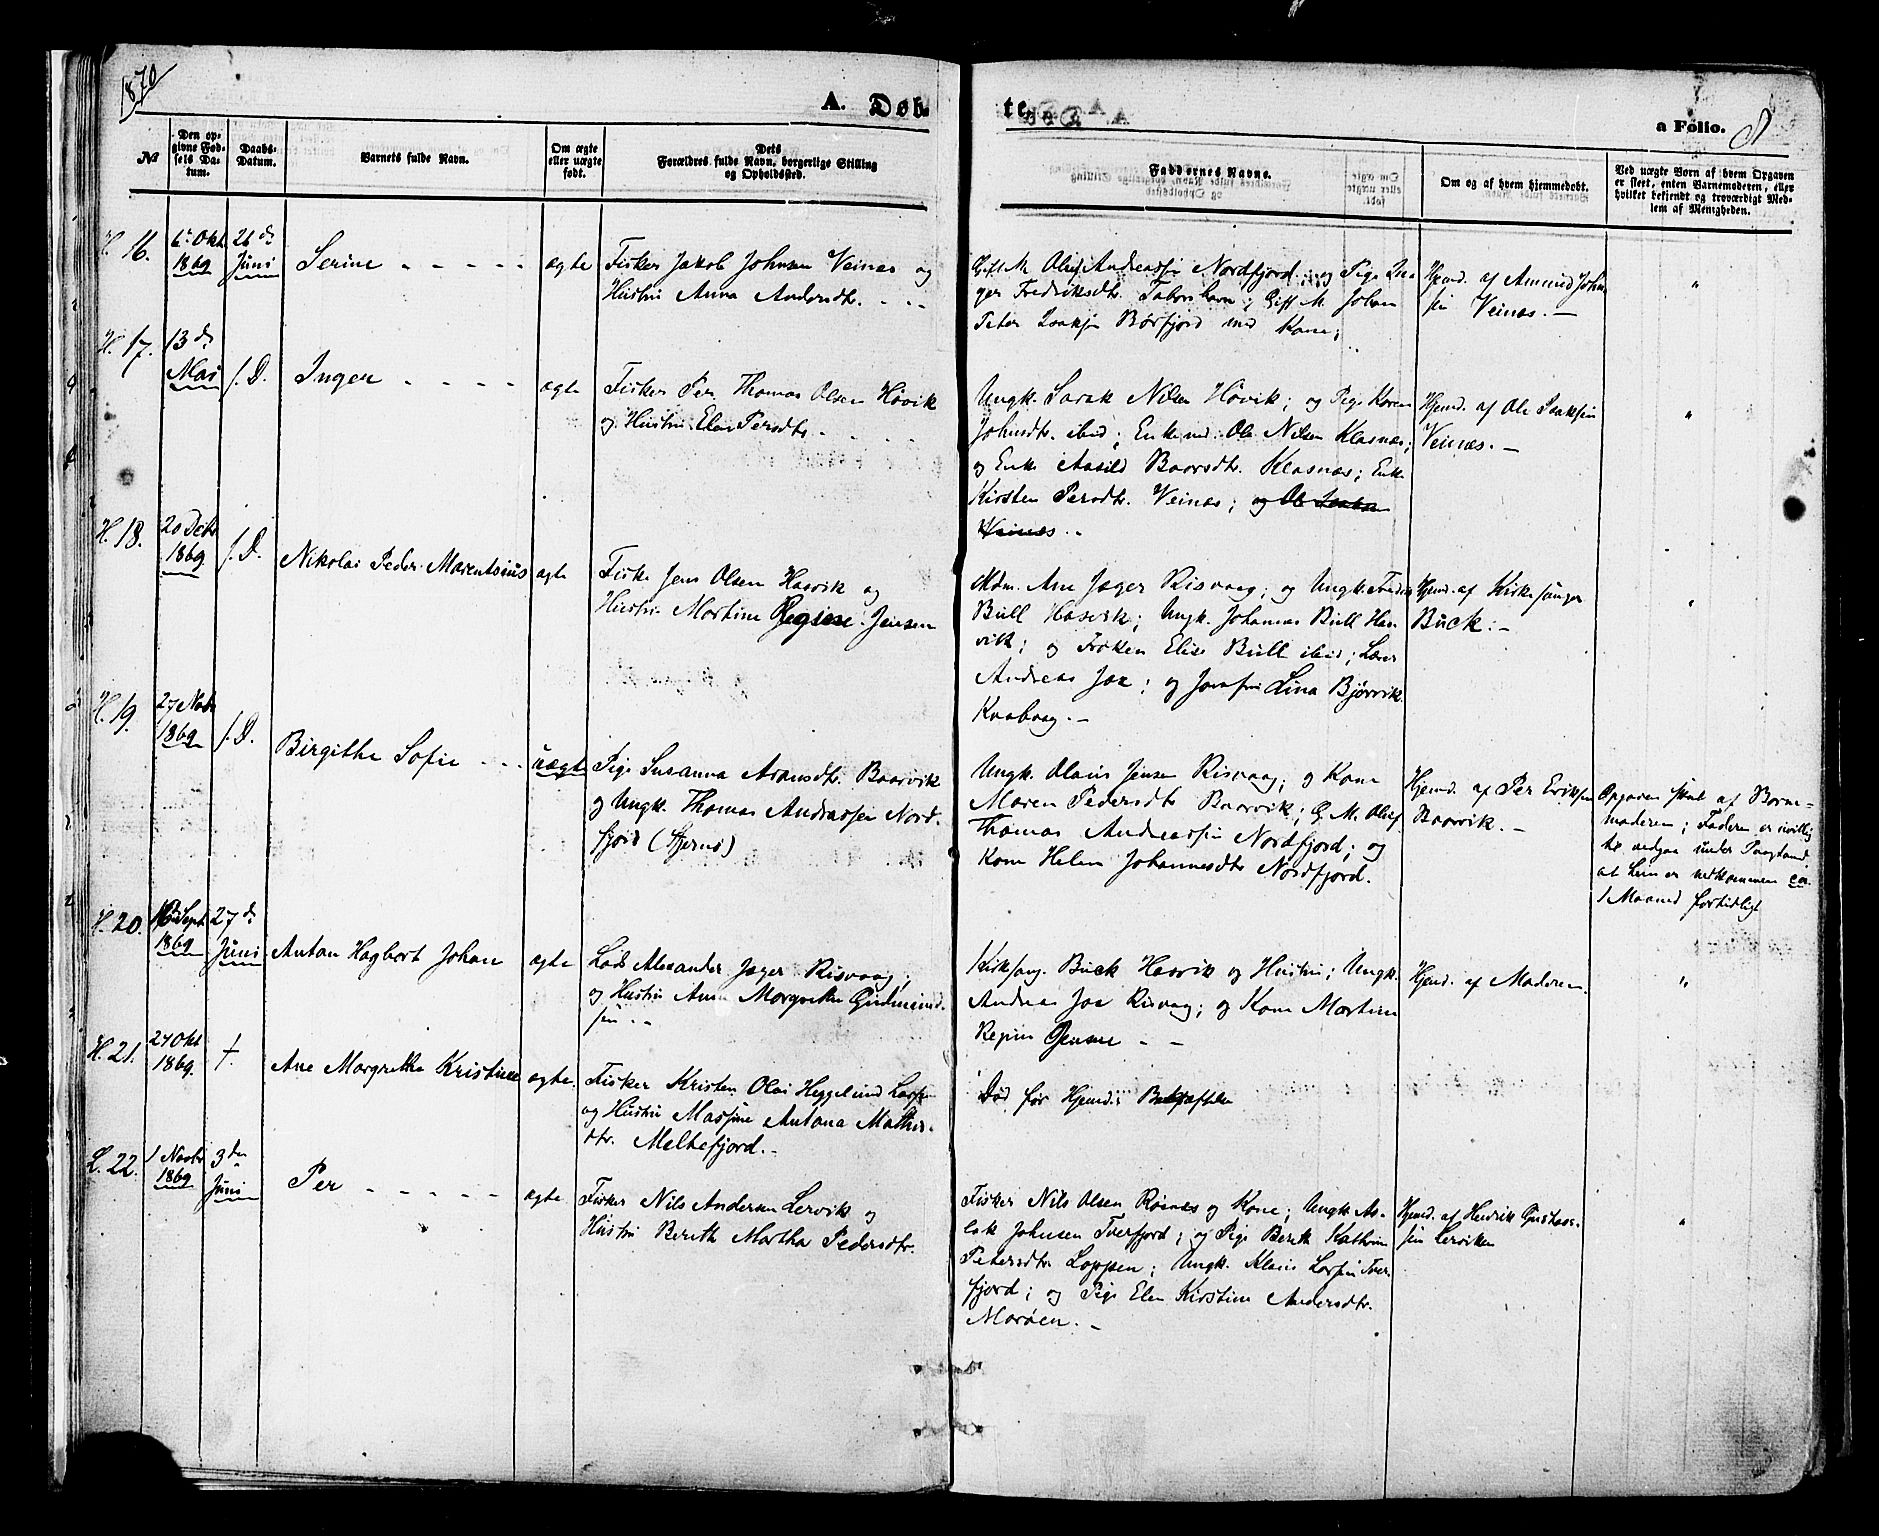 1870
A. Døb-
te.
a Folio. 8
№
Den op-
givne Fød-
sels Da-
tum.
Daabs-
Datum.
Barnets fulde Navn.
Om ægte
eller uægte
født.
Dets
Forældres fulde Navn, borgerlige Stilling
og Opholdssted.
Faddernes Navne.
Om og af hvem hjemmedøbt.
Ved uægte Børn af hvem Opgaven
er skeet, enten Barnemoderen, eller
hvilket bekjendt og troværdigt Med-
lem af Menigheden.
H. 16.
6te Okt.
1869
26 d.
Juni
Serine
ægte
Fisker Jakob Johnsen Veines og
Hustru Anna Andersdtr.
Gift M. Oluf Andreassen Nordfjord og Pige In-
ger Fredriksdtr. ; Gift M. Johan
Peter Isaksen Børfjord med Kone;
Hjemd. af Amund John-
sen Veines. —
"
H. 17.
13 d.
Mai
s. D.
Inger
ægte
Fisker Per Thomas Olsen Høvik
og Hustru Elen Persdtr.
Ungk. Sarak Nilsen Høvik; og Pige Karen
Johnsdtr. ibid; Enkemd. Ole Nilsen Klasnæs;
og Enke Baarsdtr. Klasnæs; Enke
Kirsten Persdtr. Veinæs; og Ole Isaksen
Veinæs. -
Hjemd. af Ole Isaksen
Veinæs. —
"
H. 18.
20 Debr
1869
s. D.
Nikolai Peder Marentsius
ægte
Fisker Jens Olsen Hasvik og
Hustru Martine Regine Jensen
Mdm. Ane Jager Risvaag; og Ungk. Fredr.
Bull Hasvik; Ungk. Johannes Bull Has-
vik; og Frøken Elise Bull ibid; Lærer
Andreas Jox; og Jomfru Lina Bjørvik
Kvabvag. —
Hjemd. af Kirkesanger
Buck. —
"
H. 19.
27 Nobr
1869
s. D.
Birgithe Sofie
uægte
Pige Susanna Aronsdtr. Baarvik
og Ungk. Thomas Andreassen Nord-
fjord (Stjernø)
Ungk. Olaus Jensen Risvaag; og Kone
Maren Pedersdtr Baarvik; G. M. Oluf
Thomas Andreassen Nordfjord; og
Kone Helen Johannesdtr Nordfjord.
Hjemd. af Per Eriksen
Baarvik. —
Opgaven skeet af Barne-
moderen; Faderen er uvillig
til vedgaa under Paastand
at Leien er nedkommen ca.
1 Maaned førtidligt
H. 20.
Sept
1869
27 d.
Juni
Anton Hagbart Johan
ægte
Lods Alexander Jager Risvaag;
og Hustru Anne Margrethe Gudmund-
sen - -
Kirksang. Buck Hasvik og Hustru; Ungk.
Andreas Jox Risvaag; og Kone Martine
Regine Jensen — —
Hjemd. af Moderen.
"
H. 21.
24 Okt
1869.
†.
Ane Margrethe Kristine
ægte.
Fisker Kristen Olai Heggelund Larsen
og Hustru Massine Antona Mathis-
dtr. Melkefjord. -
Død før Hjemd.
L. 22.
1 Novbr
1869
3die
Juni
Per
ægte
Fisker Nils Andersen Lervik og
Hustru Bereth Martha Pedersdtr.
Fisker Nils Olsen Røsnæs og Kone; Ungk. As-
lak Johnsen Tverfjord; og Pige Bereth Kathrine
Petersdtr Loppen; Ungk. Klaus Larsen Tver-
fjord; og Pige Elen Kirstine Andersdtr.
Marøen. —
Hjemd. af Hendrik Gustav-
sen Lerviken
"